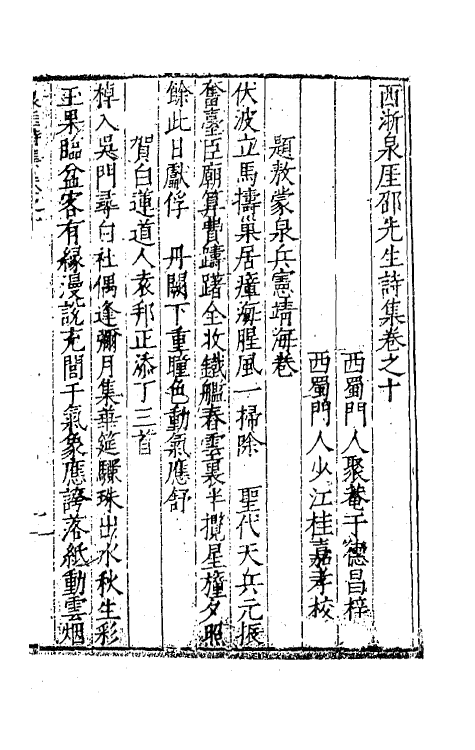 西浙泉厓邵先生詩集卷之十
西蜀門人聚菴于德昌梓
西蜀門人少江桂嘉孝校
題敖蒙泉兵憲靖海巻
伏波立馬擣巢居瘴海腥風一掃除 聖代天兵元振
奮臺臣廟算費躊躇全收鐵艦春雲裏半攬星幢夕照
餘此日獻俘 丹闕下重瞳色動氣應舒
賀白蓮道人袁邦正添丁三首
棹入吳門尋白社偶逢彌月集華筵驪珠出水秋生彩
玉果臨盆客有緣漫說充閭干氣象應誇落紙動雲烟